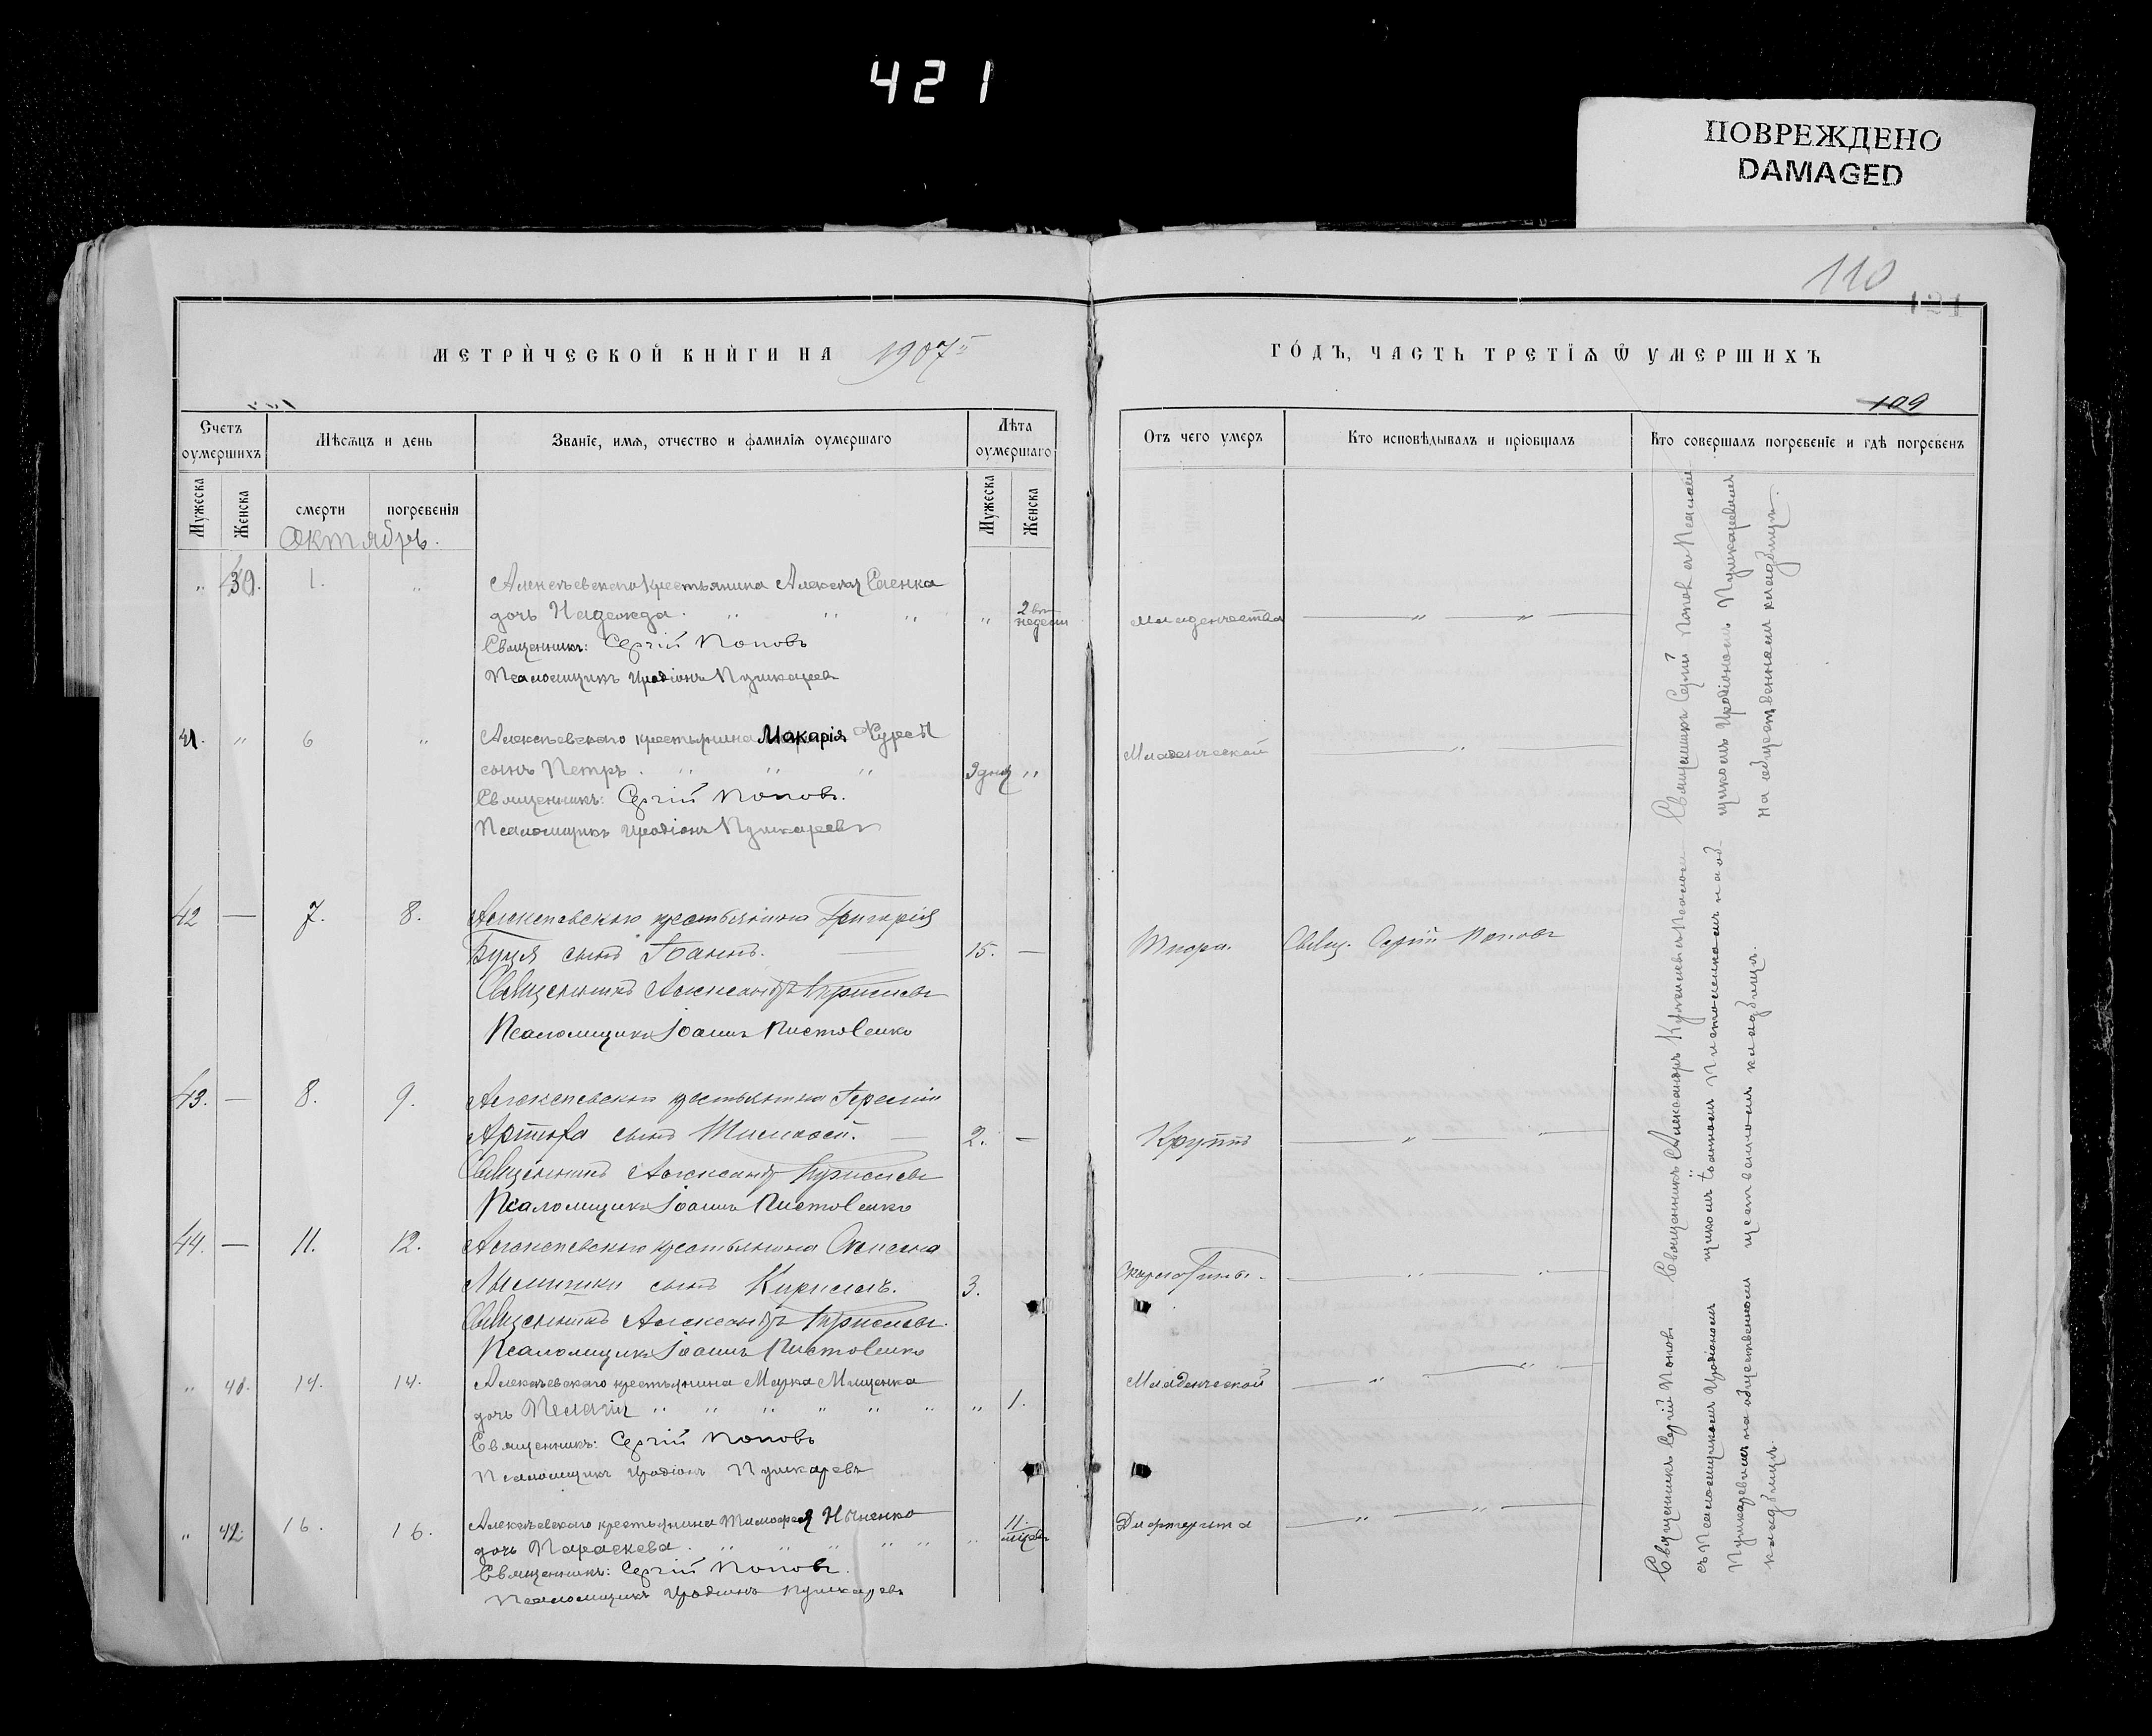 421
ПОВРЕЖДЕНО
DAMAGED
110
121
МЕТРИЧЕСКОЙ КНИГИ НА 1907
ГОДЪ, ЧАСТЬ ТРЕТІѦ Ѿ УМЕРШИХЪ
109
Счетъ оумершихъ
Мѣсѧцъ и день
Званіе, имѧ, отчество и фамиліѧ оумершаго
Лѣта оумершаго
Отъ чего умеръ
Кто исповѣдывалъ и пріобщалъ
Кто совершалъ погребеніе и гдѣ погребенъ
Мужеска
Женска
смерти
погребенія
Мужеска
Женска
Октябрь.
" 39. 1. " Алексѣевскаго крестьянина Алексѣя
дочь Надежда. " " " " 2 недели Младенчества " "
Священникъ: Сергій Поповъ
Псаломщикъ Иродіонъ Пушкаревъ
41. " 6 " Алексѣевскаго крестьянина Макарія Младенческой "
сынъ Петръ. " " " 9 дня "
Священникъ: Сергій Поповъ.
Псаломщикъ Иродіонъ Пушкаревъ
42 — 7. 8. Алексѣевскаго крестьянина Григорія
сынъ Іоаннъ. 15. — Свящ. Сергій Поповъ
Священникъ Александръ
Псаломщикъ Іоаннъ Пистоленко
43. — 8. 9. Алексѣевскаго крестьянина
сынъ 2. — Круппъ "
Священникъ Александръ
Псаломщикъ Іоаннъ Пистоленко
44. — 11. 12. Алексѣевскаго крестьянина
сынъ Кириллъ. 3. Скарлатины.
Священникъ Александръ
Псаломщикъ Іоаннъ Пистоленко
" 40. 14. 14. Алексѣевскаго крестьянина Марка Мищенка Младенческой " "
дочь Пелагія " " " " " " " 1.
Священникъ: Сергій Поповъ
Псаломщикъ Иродіонъ Пушкаревъ
" 42. 16. 16. Алексѣевскаго крестьянина Тимофея 11. Дифтерита " "
дочь Параскева. " " " " " " мѣсяц.
Священникъ: Сергій Поповъ.
Псаломщикъ Иродіонъ Пушкаревъ
Священникъ Сергій Поповъ съ Псалом-
щикомъ Иродіономъ Пушкаревымъ
на общественномъ кладбищѣ.
Священникъ Александръ съ Псалом-
щикомъ Іоанномъ Пистоленкомъ на об-
щественномъ кладбищѣ.
Священникъ Сергій Поповъ
съ Псаломщикомъ Иродіономъ
Пушкаревымъ на общественномъ
кладбищѣ.